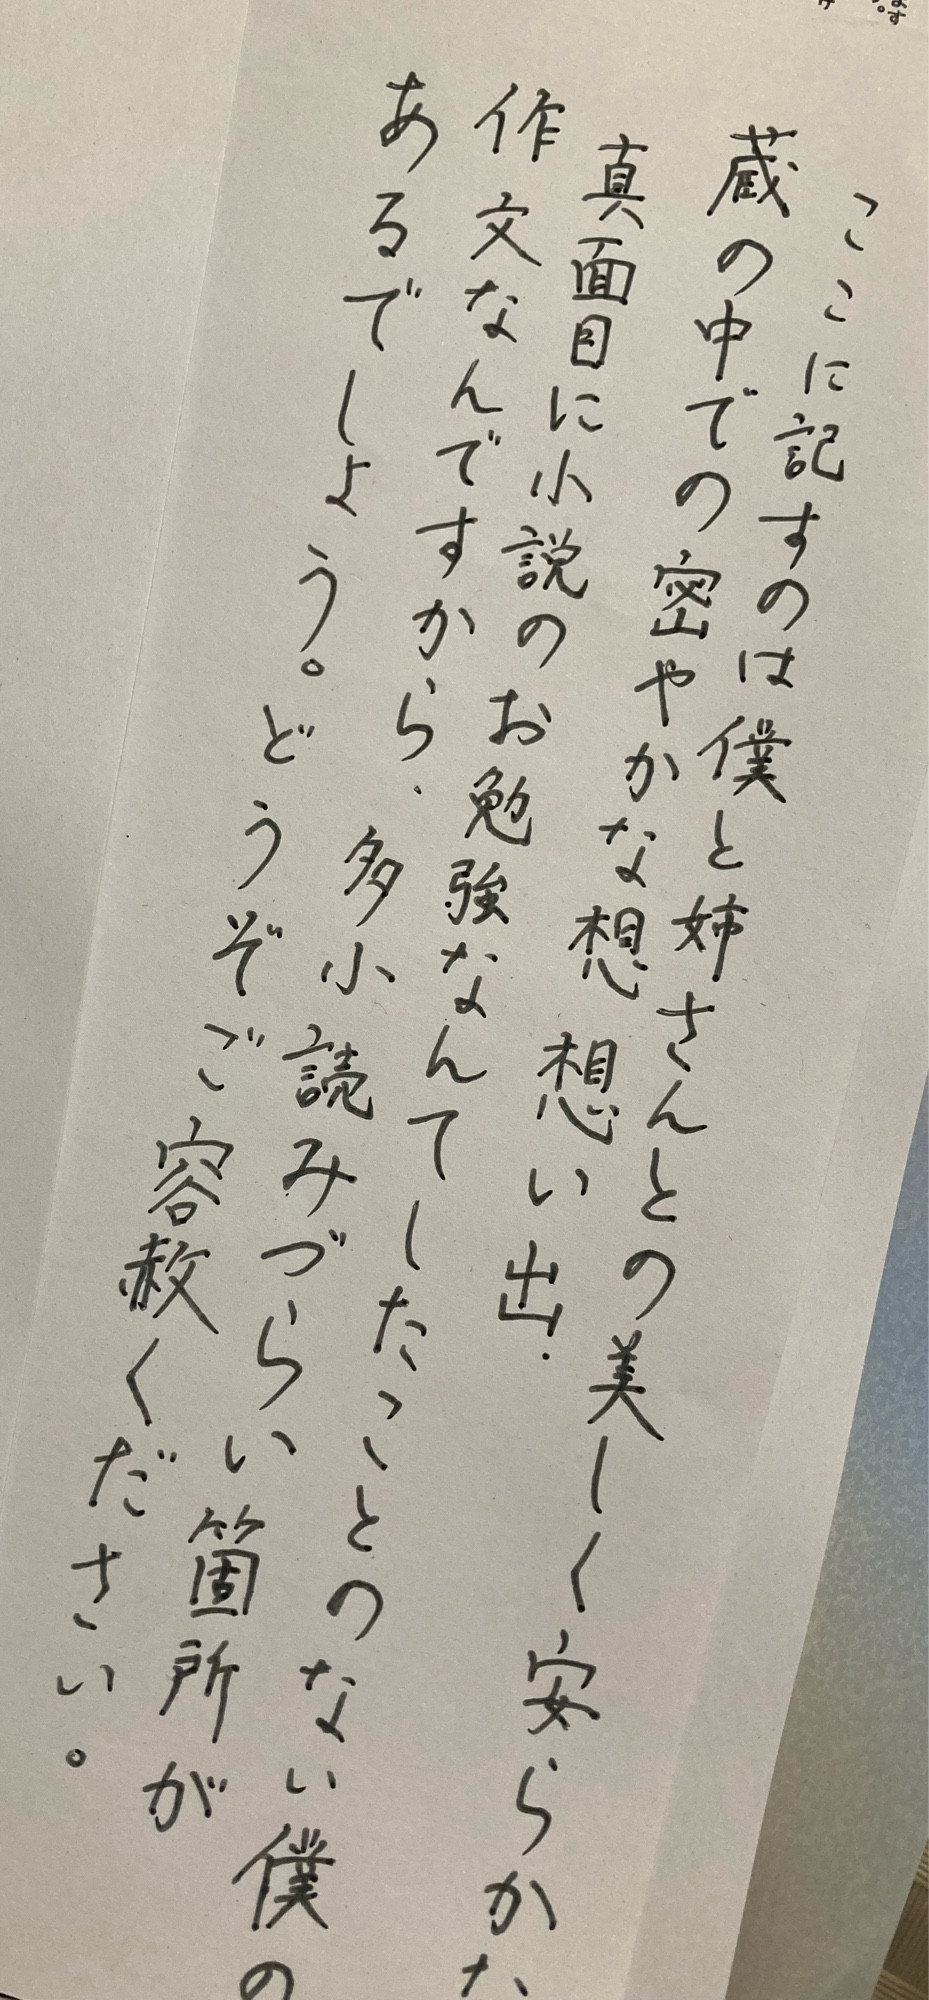 ここに記すのは僕と姉さんとの美しく安らかな
蔵の中での密やかな想想い出.
真面目に小説のお勉強なんてしたことのない僕の
作文なんですから.多小読みづらい箇所が
あるでしょう。どうぞご容赦ください。